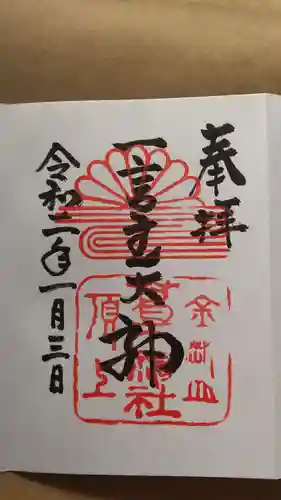 奉拝
一言主大神
金剛山
葛木神社
頂上
令和二年一月三日